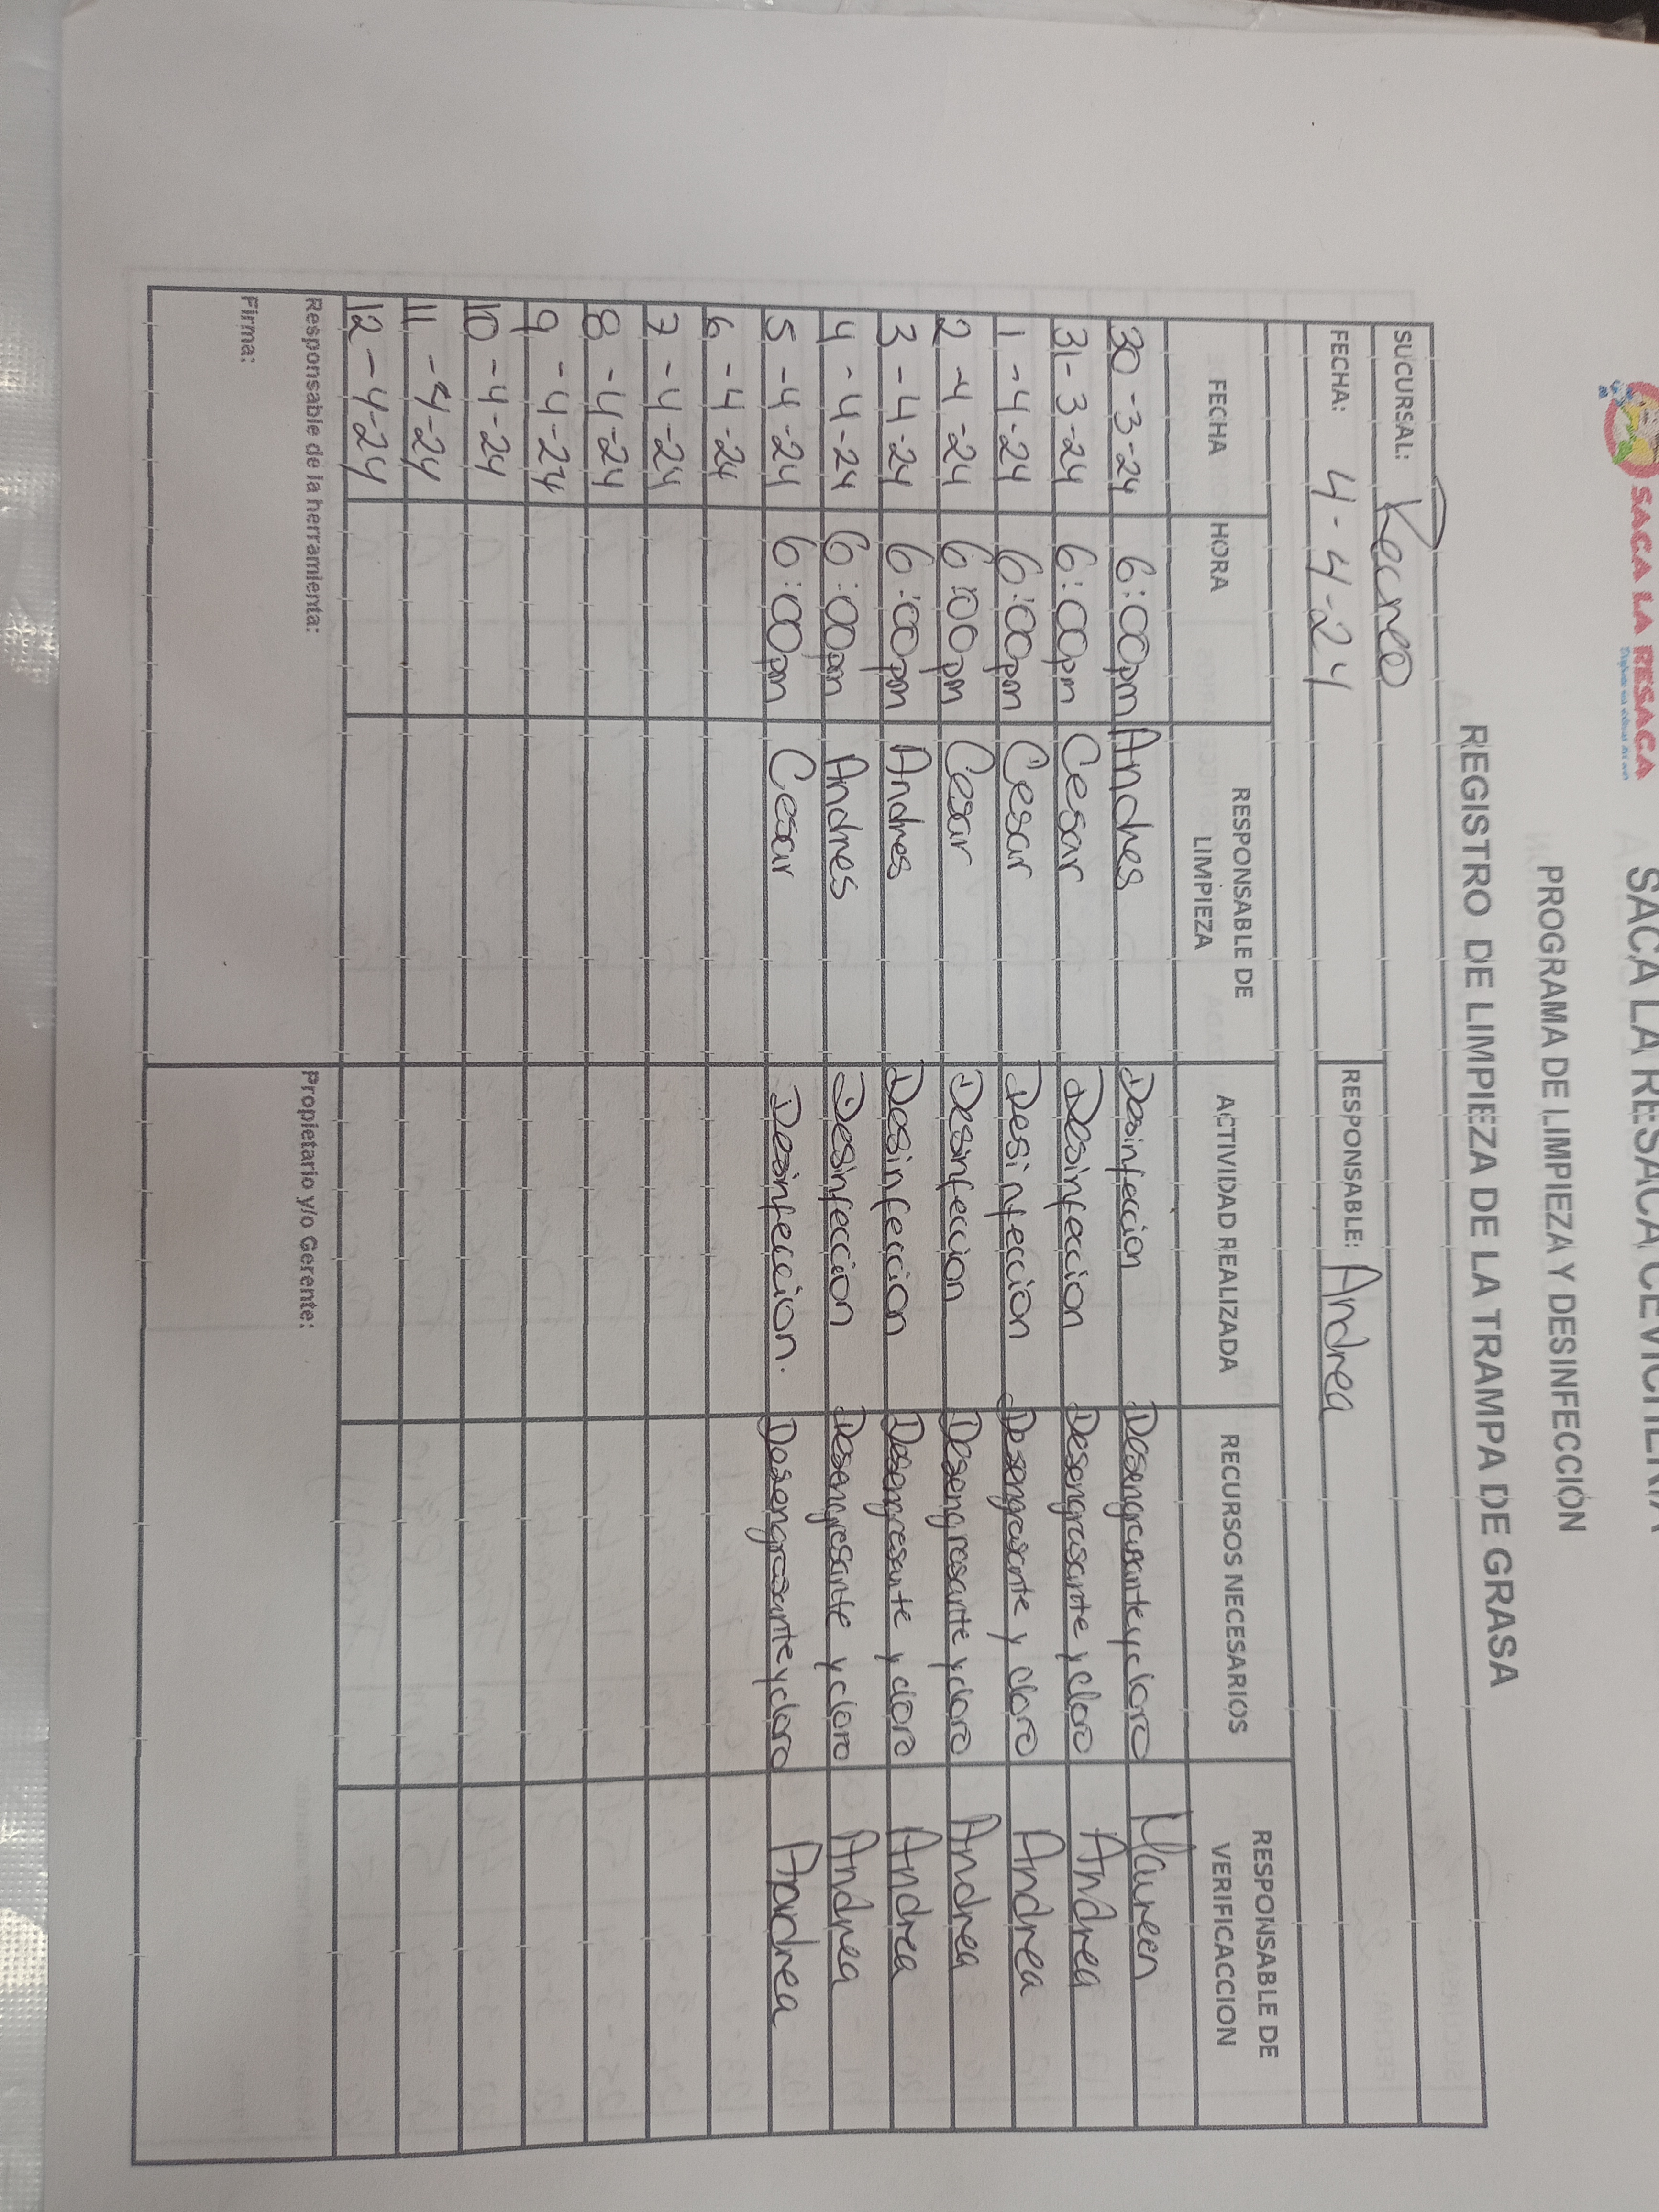 SACA LA RESACA
SACA LA RESACA CEVICHERIA
PROGRAMA DE LIMPIEZA Y DESINFECCIÓN
REGISTRO DE LIMPIEZA DE LA TRAMPA DE GRASA
SUCURSAL: Recreo
FECHA: 4-4-24 RESPONSABLE: Andrea
FECHA HORA RESPONSABLE DE LIMPIEZA ACTIVIDAD REALIZADA RECURSOS NECESARIOS RESPONSABLE DE VERIFICACCION
30-3-24 6:00pm Andres Desinfeccion Desengrasante y cloro Maureen
31-3-24 6:00pm Cesar Desinfeccion Desengrasante y cloro Andrea
1-4-24 6:00pm Cesar Desinfeccion Desengrasante y cloro Andrea
2-4-24 6:00pm Cesar Desinfeccion Desengrasante y cloro Andrea
3-4-24 6:00pm Andres Desinfeccion Desengresante y cloro Andrea
4-4-24 6:00pm Andres Desinfeccion Desengresante y cloro Andrea
5-4-24 6:00pm Cesar Desinfeccion. Desengrasante y cloro Andrea
6-4-24
7-4-24
8-4-24
9-4-24
10-4-24
11-4-24
12-4-24
Responsable de la herramienta: Propietario y/o Gerente:
Firma: